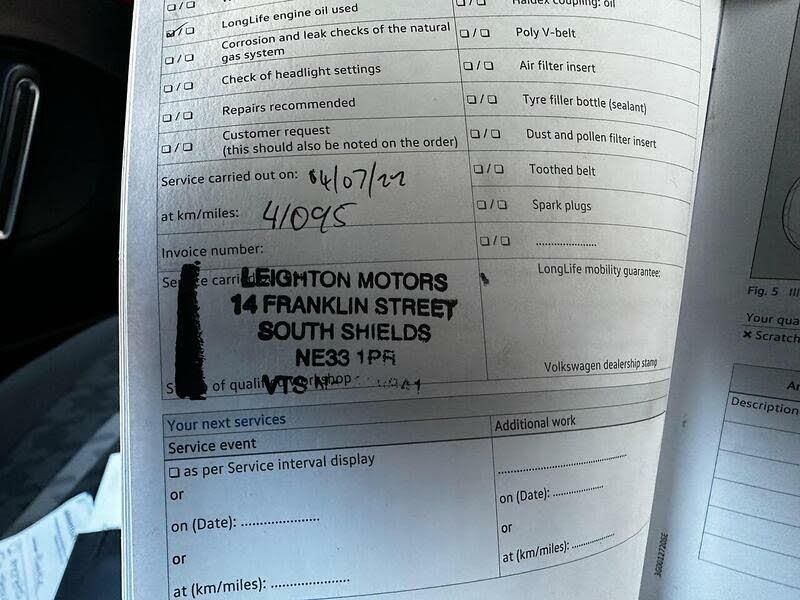 LongLife engine oil used
Corrosion and leak checks of the natural
gas system
Check of headlight settings
Repairs recommended
Customer request
(this should also be noted on the order)
Service carried out on: 04/07/22
at km/miles: 41095
Invoice number:
LEIGHTON MOTORS
14 FRANKLIN STREET
SOUTH SHIELDS
NE33 1PR
VTS
Haldex coupling: oil
Poly V-belt
Air filter insert
Tyre filler bottle (sealant)
Dust and pollen filter insert
Toothed belt
Spark plugs
.....................
LongLife mobility guarantee:
Volkswagen dealership stamp
Your next services
Service event
☐ as per Service interval display
or
on (Date): ....................
or
at (km/miles): ....................
Additional work
.................................
on (Date): .............
or
at (km/miles): ...........
3G0012720SE
Fig. 5
Your qua
✕ Scratch
Description